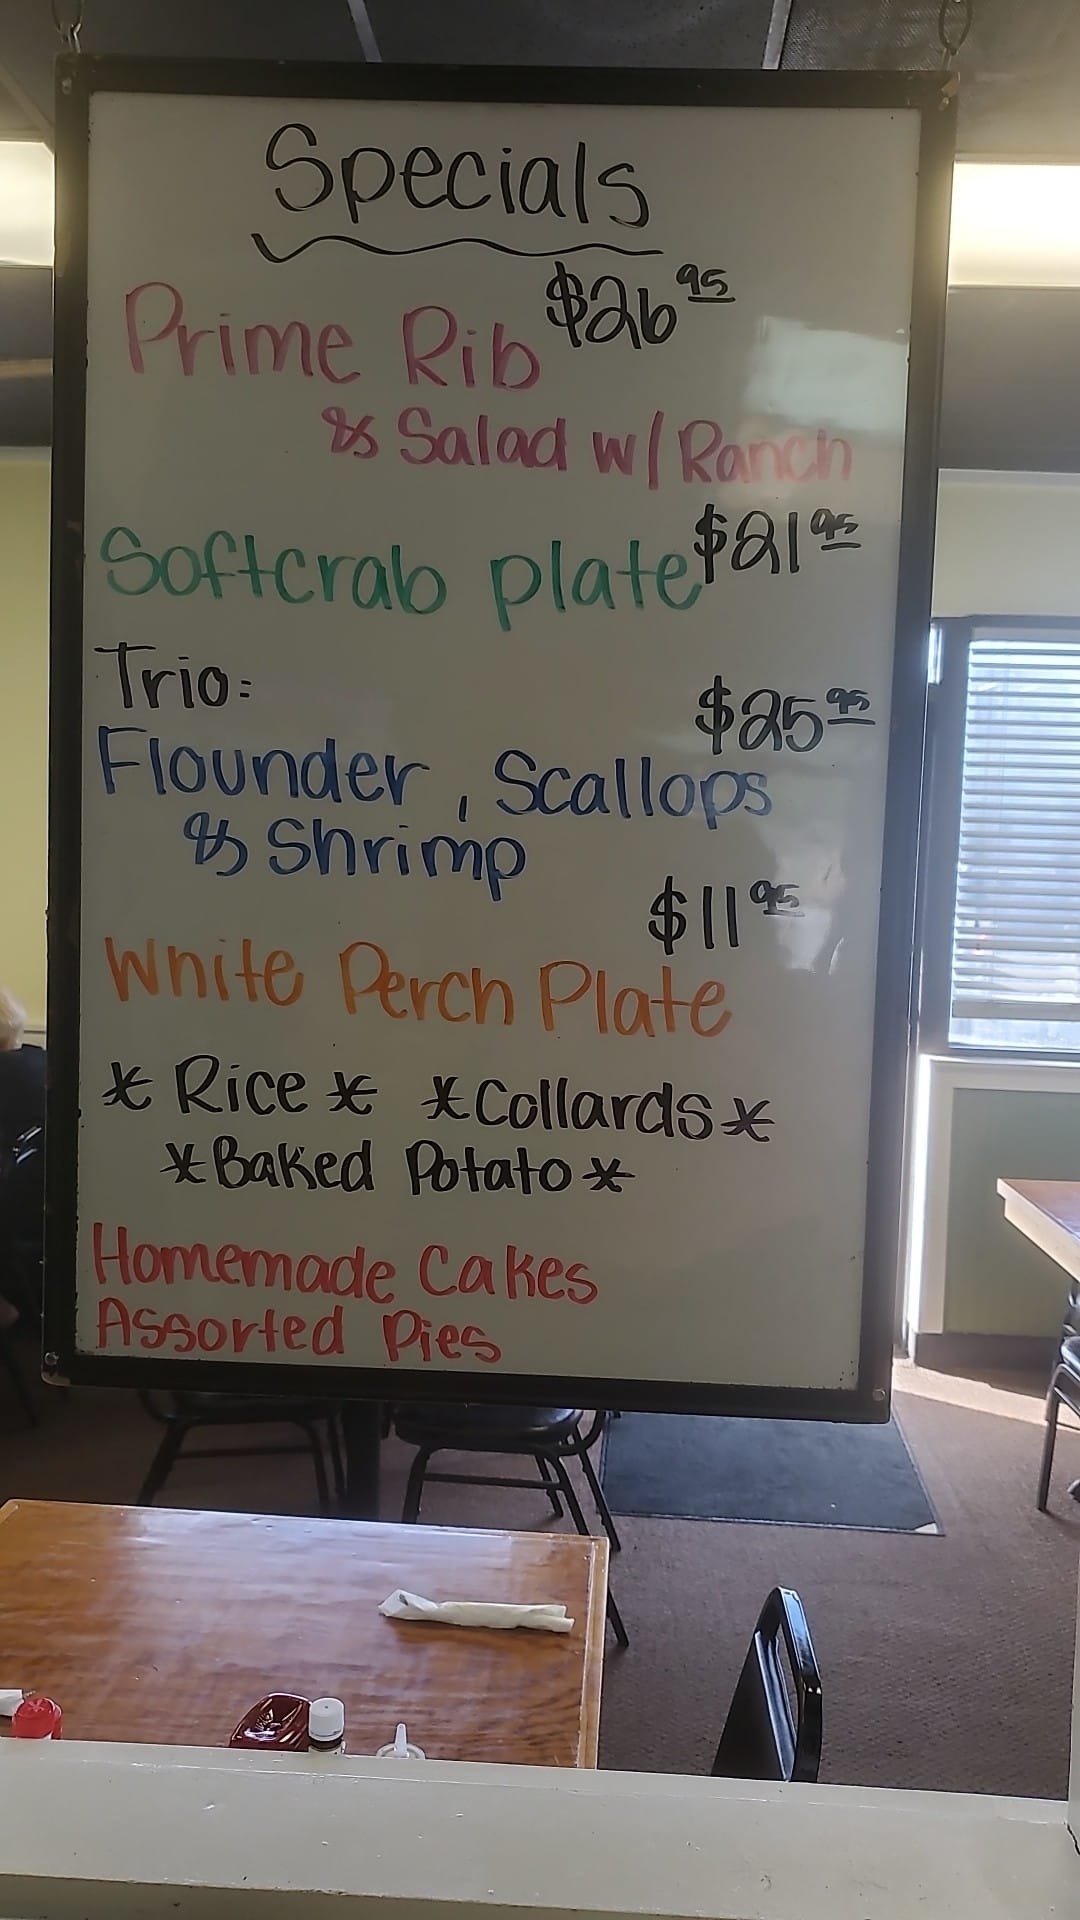 Specials
$26.95
Prime Rib
& Salad w/ Ranch
Softcrab plate $21.95
Trio:
$25.95
Flounder, Scallops
& Shrimp
$11.95
White Perch Plate
* Rice * * Collards *
* Baked Potato *
Homemade Cakes
Assorted Pies